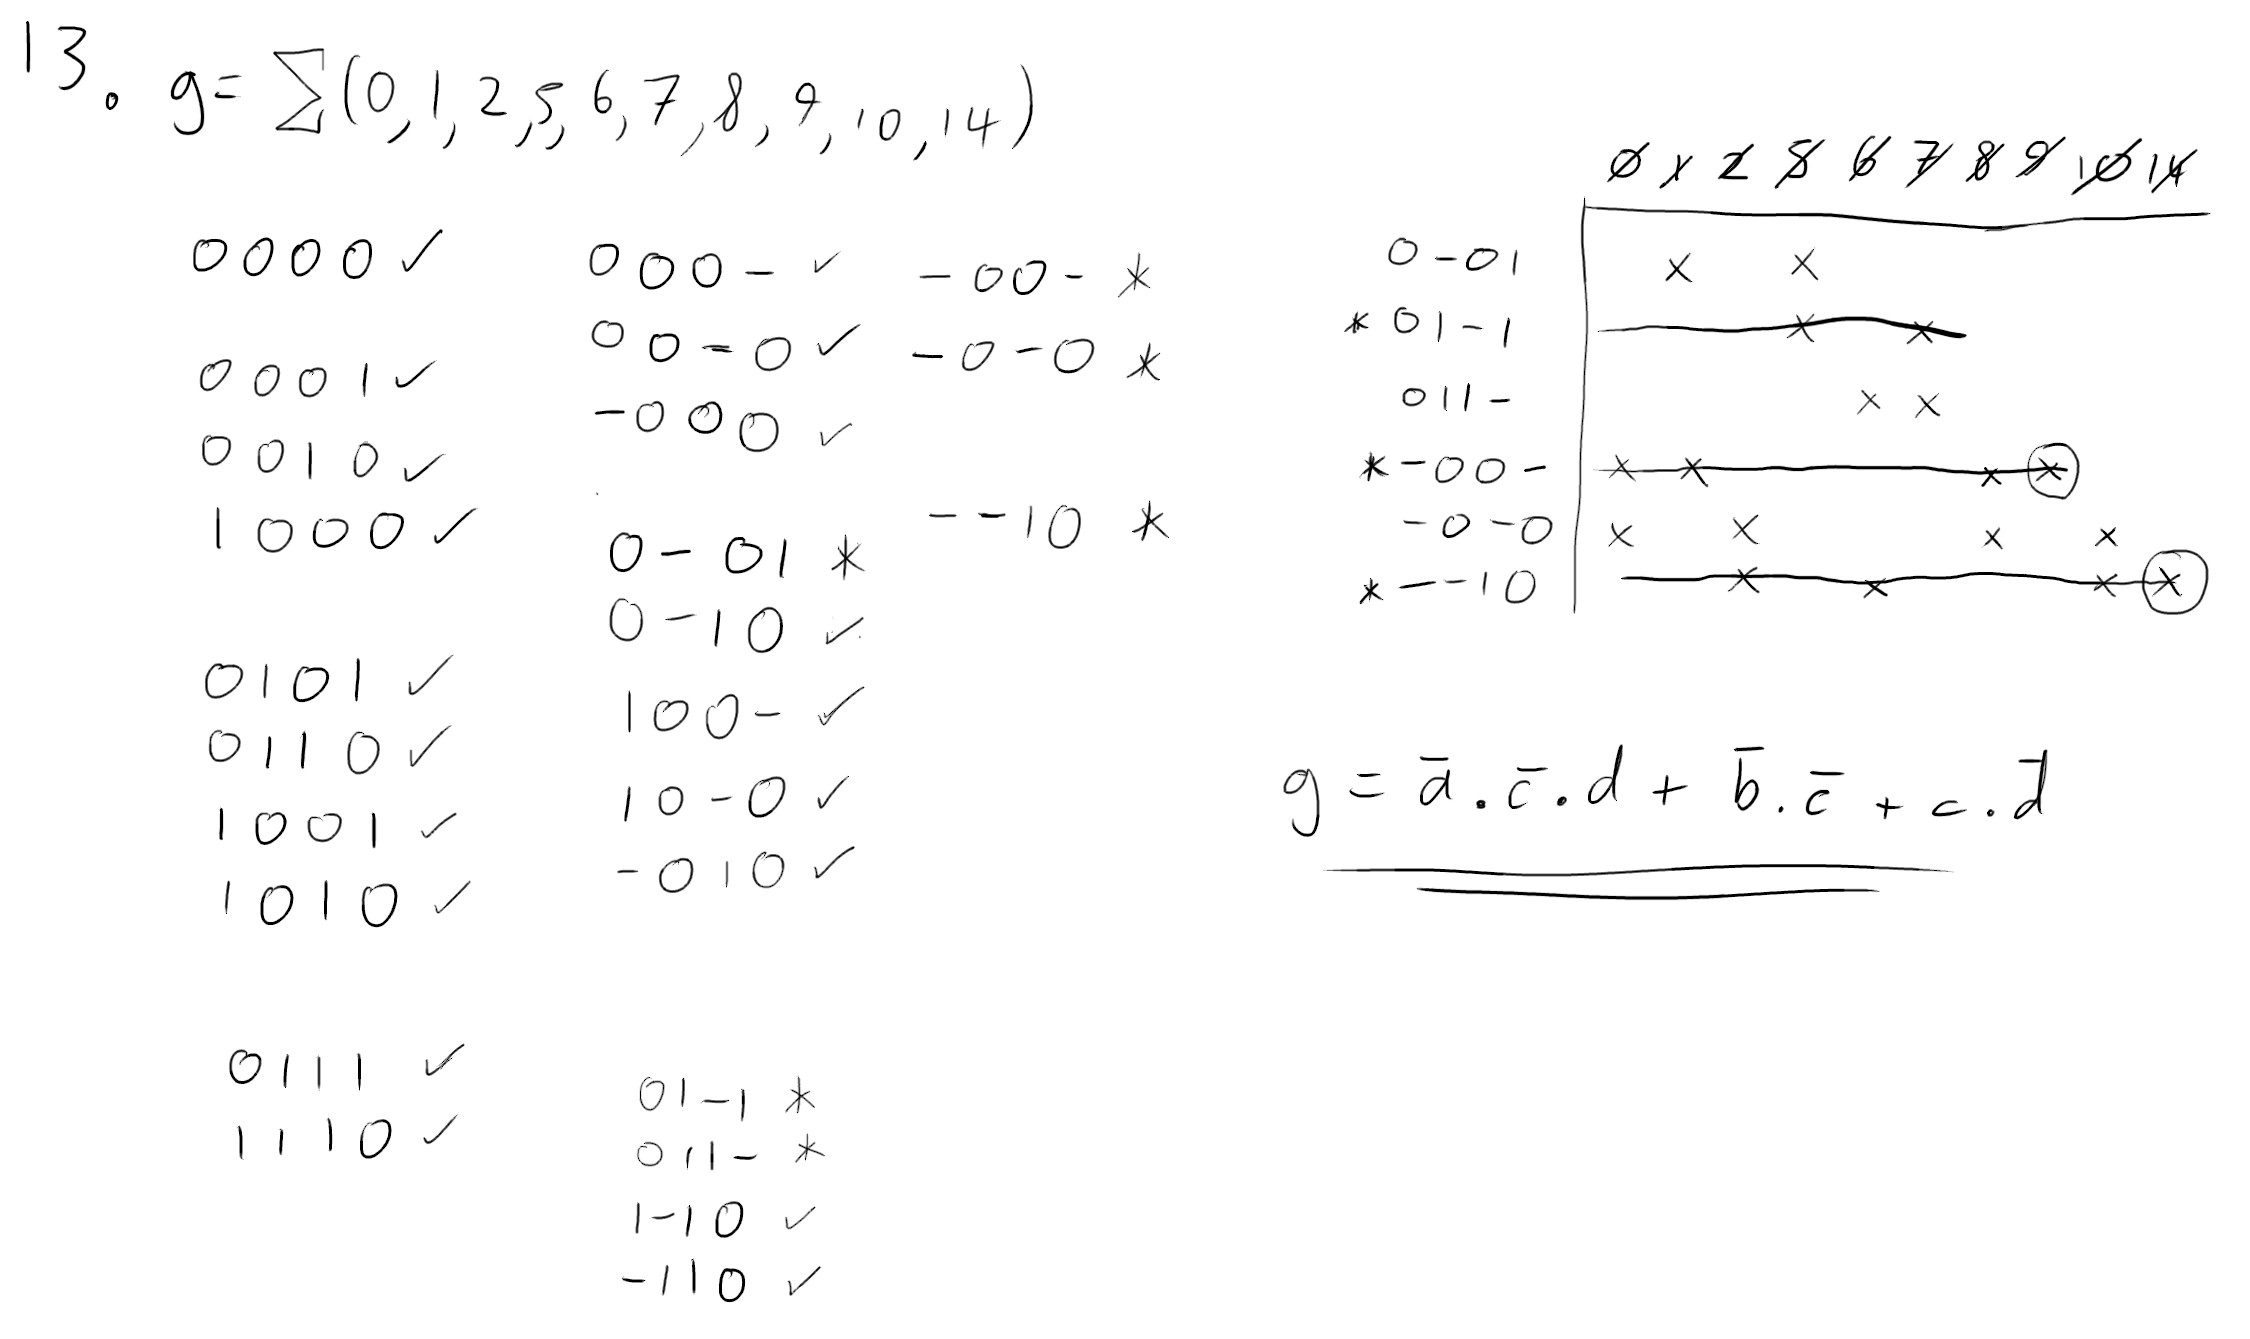 13. g = ∑(0,1,2,5,6,7,8,9,10,14)
0000 ✓
0001 ✓
0010 ✓
1000 ✓
0101 ✓
0110 ✓
1001 ✓
1010 ✓
0111 ✓
1110 ✓
000- ✓
00-0 ✓
-000 ✓
0-01 *
0-10 ✓
100- ✓
10-0 ✓
-010 ✓
01-1 *
011- *
1-10 ✓
-110 ✓
-00- *
-0-0 *
--10 *
0 1 2 5 6 7 8 9 10 14
0-01 x x
* 01-1 x x
011- x x
* -00- x x x x
-0-0 x x x x
* --10 x x x x
g = a̅.c̅.d + b̅.c̅ + c.d̅